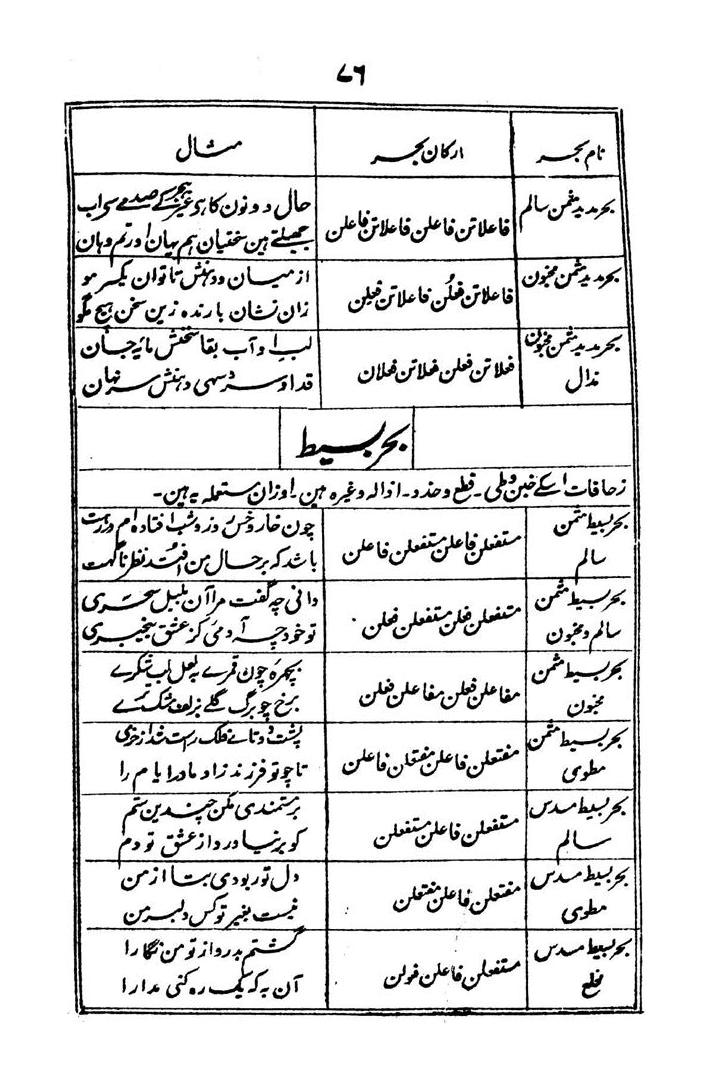 ۷۶
نام بحر ارکان بحر مثال
بحر مدید مثمن سالم
فاعلاتن فاعلن فاعلاتن فاعلن
حال دونون کا ہی غیر ہجر کے صدمے سی اب
جھیلتے ہین سختیان ہم یہان اور تم وہان
بحر مدید مثمن مخبون
فاعلاتن فعلُن فاعلاتن فعلن
از میان و دہنش تا توان یکسر مو
زان نشان باز ندہ زین سخن ہیچ مگو
بحر مدید مثمن مخبون
مذال
فعلاتن فعلن فعلاتن فعلان
لب او آب بقا سخنش مایہ جان
قد او سرو سہی دہنش سر نہان
بحر بسیط
زحافات اسکے خبن و طی ۔ قطع و حذذ ۔ اذالہ وغیرہ ہین ۔ اوزان مستعملہ یہ ہین ۔
بحر بسیط مثمن
سالم
مستفعلن فاعلن مستفعلن فاعلن
چون خار و خس روز و شب افتادہ ام در رہت
باشد کہ بر حال من افتد نظر ناگہت
بحر بسیط مثمن
سالم و مخبون
مستفعلن فعلن مستفعلن فعلن
دانی چہ گفت مرا آن بلبل سحری
تو خود چہ آدمی کز عشق بیخبری
بحر بسیط مثمن
مخبون
مفاعلن فعلن مفاعلن فعلن
بچہرہ چون قمرے بہ لعل لب شکرے
برخ چو برگ گلے بزلف مشک ترے
بحر بسیط مثمن
مطوی
مفتعلن فاعلن مفتعلن فاعلن
پشت دوتاے فلک راست شد از خرمی
تا چو تو فرزند زاد مادر ایام را
بحر بسیط مسدس
سالم
مستفعلن فاعلن مستفعلن
بر مستمندی مکن چندین ستم
کو بر نیاورد از عشق تو دم
بحر بسیط مسدس
مطوی
مفتعلن فاعلن مفتعلن
دل تو ربودی بتا از من
نیست بغیر تو کس دلبر من
بحر بسیط مسدس
مخلع
مستفعلن فاعلن فعولن
گشتم بدرد از تو من نگارا
آن بہ کہ یک رہ کنی مدارا